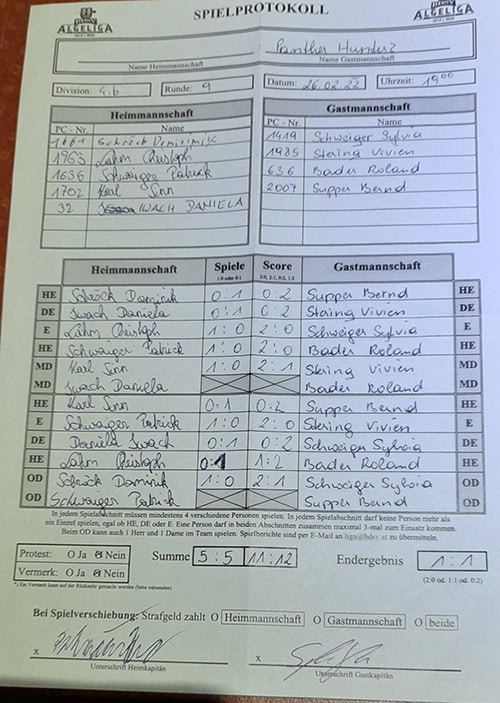 SPIELPROTOKOLL
ALGELIGA
ALGELIGA
Panther Hunterz
Name Heimmannschaft
Name Gastmannschaft
Division: 4.b Runde: 9 Datum: 26.02.22 Uhrzeit: 1900
Heimmannschaft Gastmannschaft
PC - Nr. Name PC - Nr. Name
1661 1419 Schweiger Sylvia
1963 Lahm Christoph 1985 Staring Vivien
1636 Schwaiger Patrick 636 Bader Roland
1702 Karl Sinn 2007 Supper Bernd
32 IWACH DANIELA
Heimmannschaft Spiele Score Gastmannschaft
1:0 oder 0:1 2:0, 2:1, 0:2, 1:2
HE Schröck Dominik 0:1 0:2 Supper Bernd HE
DE Iwach Daniela 0:1 0:2 Staring Vivien DE
E Lahm Christoph 1:0 2:0 Schweiger Sylvia E
HE Schwaiger Patrick 1:0 2:0 Bader Roland HE
MD Karl Sinn 1:0 2:1 Staring Vivien MD
MD Iwach Daniela Bader Roland MD
HE Karl Sinn 0:1 0:2 Supper Bernd HE
E Schwaiger Patrick 1:0 2:0 Staring Vivien E
DE Daniela Iwach 0:1 0:2 Schweiger Sylvia DE
HE Lahm Christoph 0:1 1:2 Bader Roland HE
OD Schröck Dominik 1:0 2:1 Schweiger Sylvia OD
OD Schwaiger Patrick Supper Bernd OD
In jedem Spielabschnitt müssen mindestens 4 verschiedene Personen spielen. In jedem Spielabschnitt darf keine Person mehr als
ein Einzel spielen, egal ob HE, DE oder E. Eine Person darf in beiden Abschnitten zusammen maximal 3-mal zum Einsatz kommen.
Beim OD kann auch 1 Herr und 1 Dame im Team spielen. Spielberichte sind per E-Mail an liga@bdsv.at zu übermitteln.
Protest: O Ja O Nein Summe 5:5 11:12 Endergebnis 1:1
Vermerk: O Ja O Nein (2:0 od. 1:1 od. 0:2)
*) Ein Vermerk kann auf der Rückseite gemacht werden (bitte mitsenden)
Bei Spielverschiebung: Strafgeld zahlt O Heimmannschaft O Gastmannschaft O beide
x x
Unterschrift Heimkapitän Unterschrift Gastkapitän